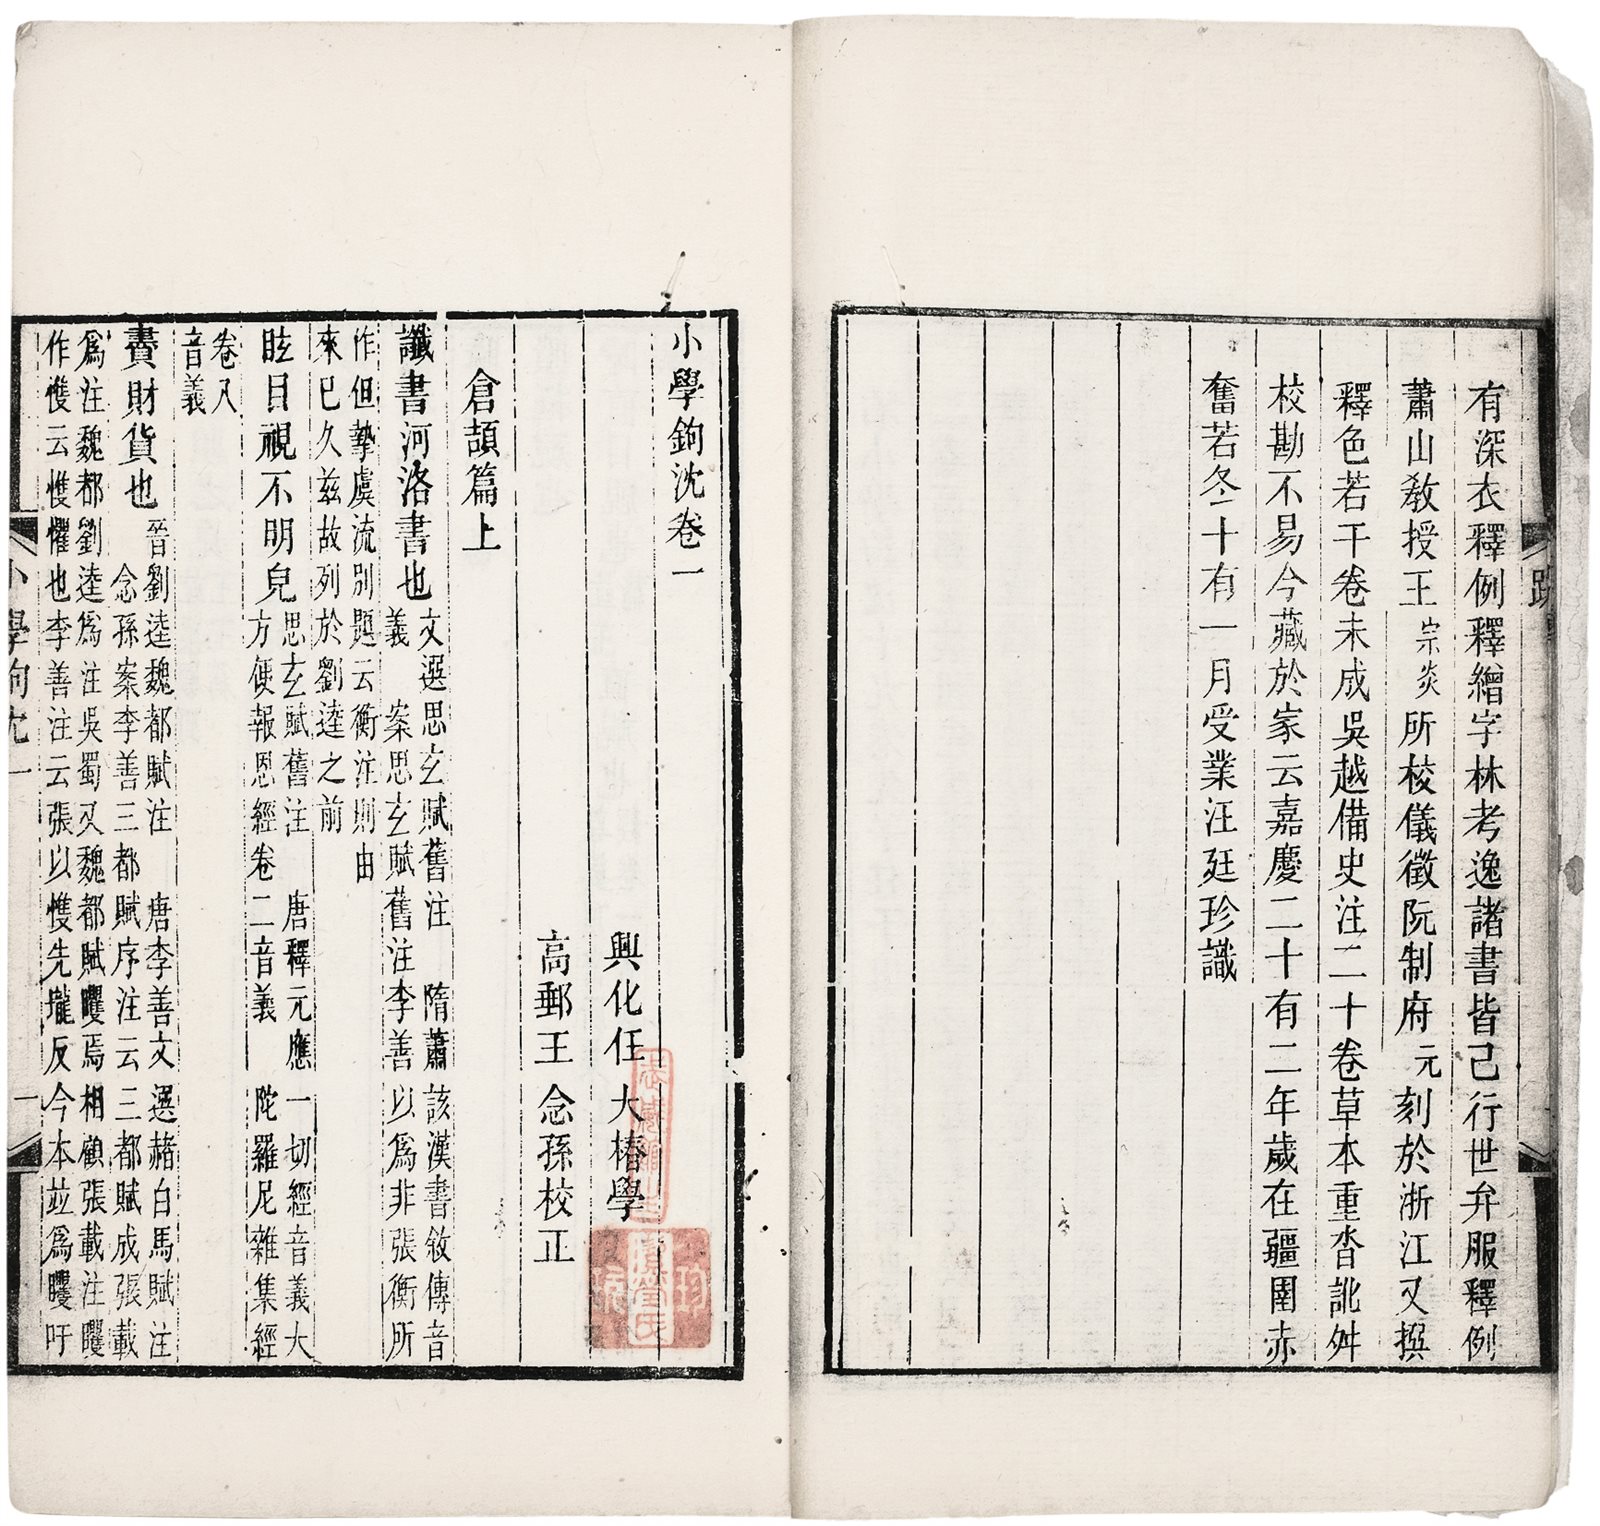 有深衣釋例釋繒字林考逸諸書皆已行世弁服釋例
蕭山教授王宗炎所校儀徵阮制府元刻於浙江又撰
釋色若干卷未成吳越備史注二十卷草本重沓訛舛
校勘不易今藏於家云嘉慶二十有二年歲在疆圉赤
奮若冬十有一月受業汪廷珍識
小學鉤沈卷一
興化任大椿學
高郵王念孫校正
倉頡篇上
讖書河洛書也文選思玄賦舊注 隋蕭該漢書敘傳音
義 案思玄賦舊注李善以為非張衡所
作但摯虞流別題云衡注則由
來已久茲故列於劉逵之前
眩目視不明皃思玄賦舊注 唐釋元應一切經音義大
方便報恩經卷二音義 陀羅尼雜集經
卷八
音義
賮財貨也晉劉逵魏都賦注 唐李善文選赭白馬賦注
念孫案李善三都賦序注云三都賦成張載
為注魏都劉逵為注吳蜀又魏都賦矆焉相顧張載注矆
作㦜云㦜懼也李善注云張以㦜先壠反今本並為矆吁
小學鉤沈一
一